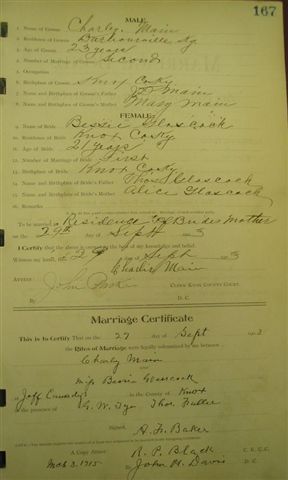 167
MALE.
1. Name of Groom Charley Main
2. Residence of Groom
3. Age of Groom 23 years
4. Number of Marriage of Groom Second
5. Occupation
6. Birthplace of Groom Knox Co Ky
7. Name and Birthplace of Groom's Father Main
8. Name and Birthplace of Groom's Mother Mary Main
FEMALE.
9. Name of Bride Bessie Glascock
10. Residence of Bride Knox Co Ky
11. Age of Bride 21 years
12. Number of Marriage of Bride First
13. Birthplace of Bride Knox Co Ky
14. Name and Birthplace of Bride's Father Thos Glascock
15. Name and Birthplace of Bride's Mother Alice Glascock
16. Remarks
To be married at Residence of Brides Mother
on the day of Sept 3
I Certify that the above is correct to the best of my knowledge and belief.
Witness my hand, this day of Sept 3
Charlie Main
Attest:
John Clerk Knox County Court.
By D. C.
Marriage Certificate
This is to Certify That on the 27 day of Sept
the Rites of Marriage were legally solemnized by me between
Charly Main
and
Miss Bessie Glascock
at Jeff in the County of Knox
in the presence of G. W. Tye Thos. Fuller
Signed, A. F. Baker
A Copy Attest
R. P. Black C. K. C. C.
Mch 3. 1915. By John H. Davis D. C.